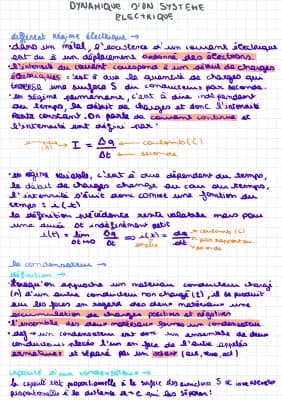 DYNAMIQUE D'UN SYSTÈME
ELECTRIQUE
différent régime électrique →
• dans un métal, l'existence d'un courant électrique
est du à un déplacement ordonné des électrons.
• l'intensité du courant correspond à un débit de charges
électriques : c'est à due la quantité de charges qui
traverse une surface S du conducteur par seconde.
• en régime permanent, c'est à due indépendant
du temps, le débit de charges et donc l'intensité
reste constant. On parle de courant continue et
l'intensité est défini par :
I = Δq / Δt
coulombs (C)
seconde
• en régime variable, c'est à due dépendant du temps,
le débit de charges change au cour du temps,
l'intensité s'écrit donc comme une fonction du
temps : i(t)
la définition précédente reste valable mais pour
une durée Δt indéfiniment petit
i(t) = lim Δt→0 Δq/Δt ⇒ i(t) = dq/dt
coulombs (C)
ampère
le condensateur →
définition →
lorsqu'on approche un matériau conducteur chargé
(n) d'un autre conducteur non chargé (t), il se produit
sur les faces en regard des deux matériaux une
accumulation de charges positives et négatives
• l'ensemble des deux matériaux forme un condensateur
• def → un condensateur est donc un ensemble de deux
conducteurs placés l'un en face de l'autre appelés
armatures et séparé par un isolant
capacité d'un condensateur →
la capacité est proportionnelle à la surface des armatures S
proportionnelle à la distance qui les sépare :